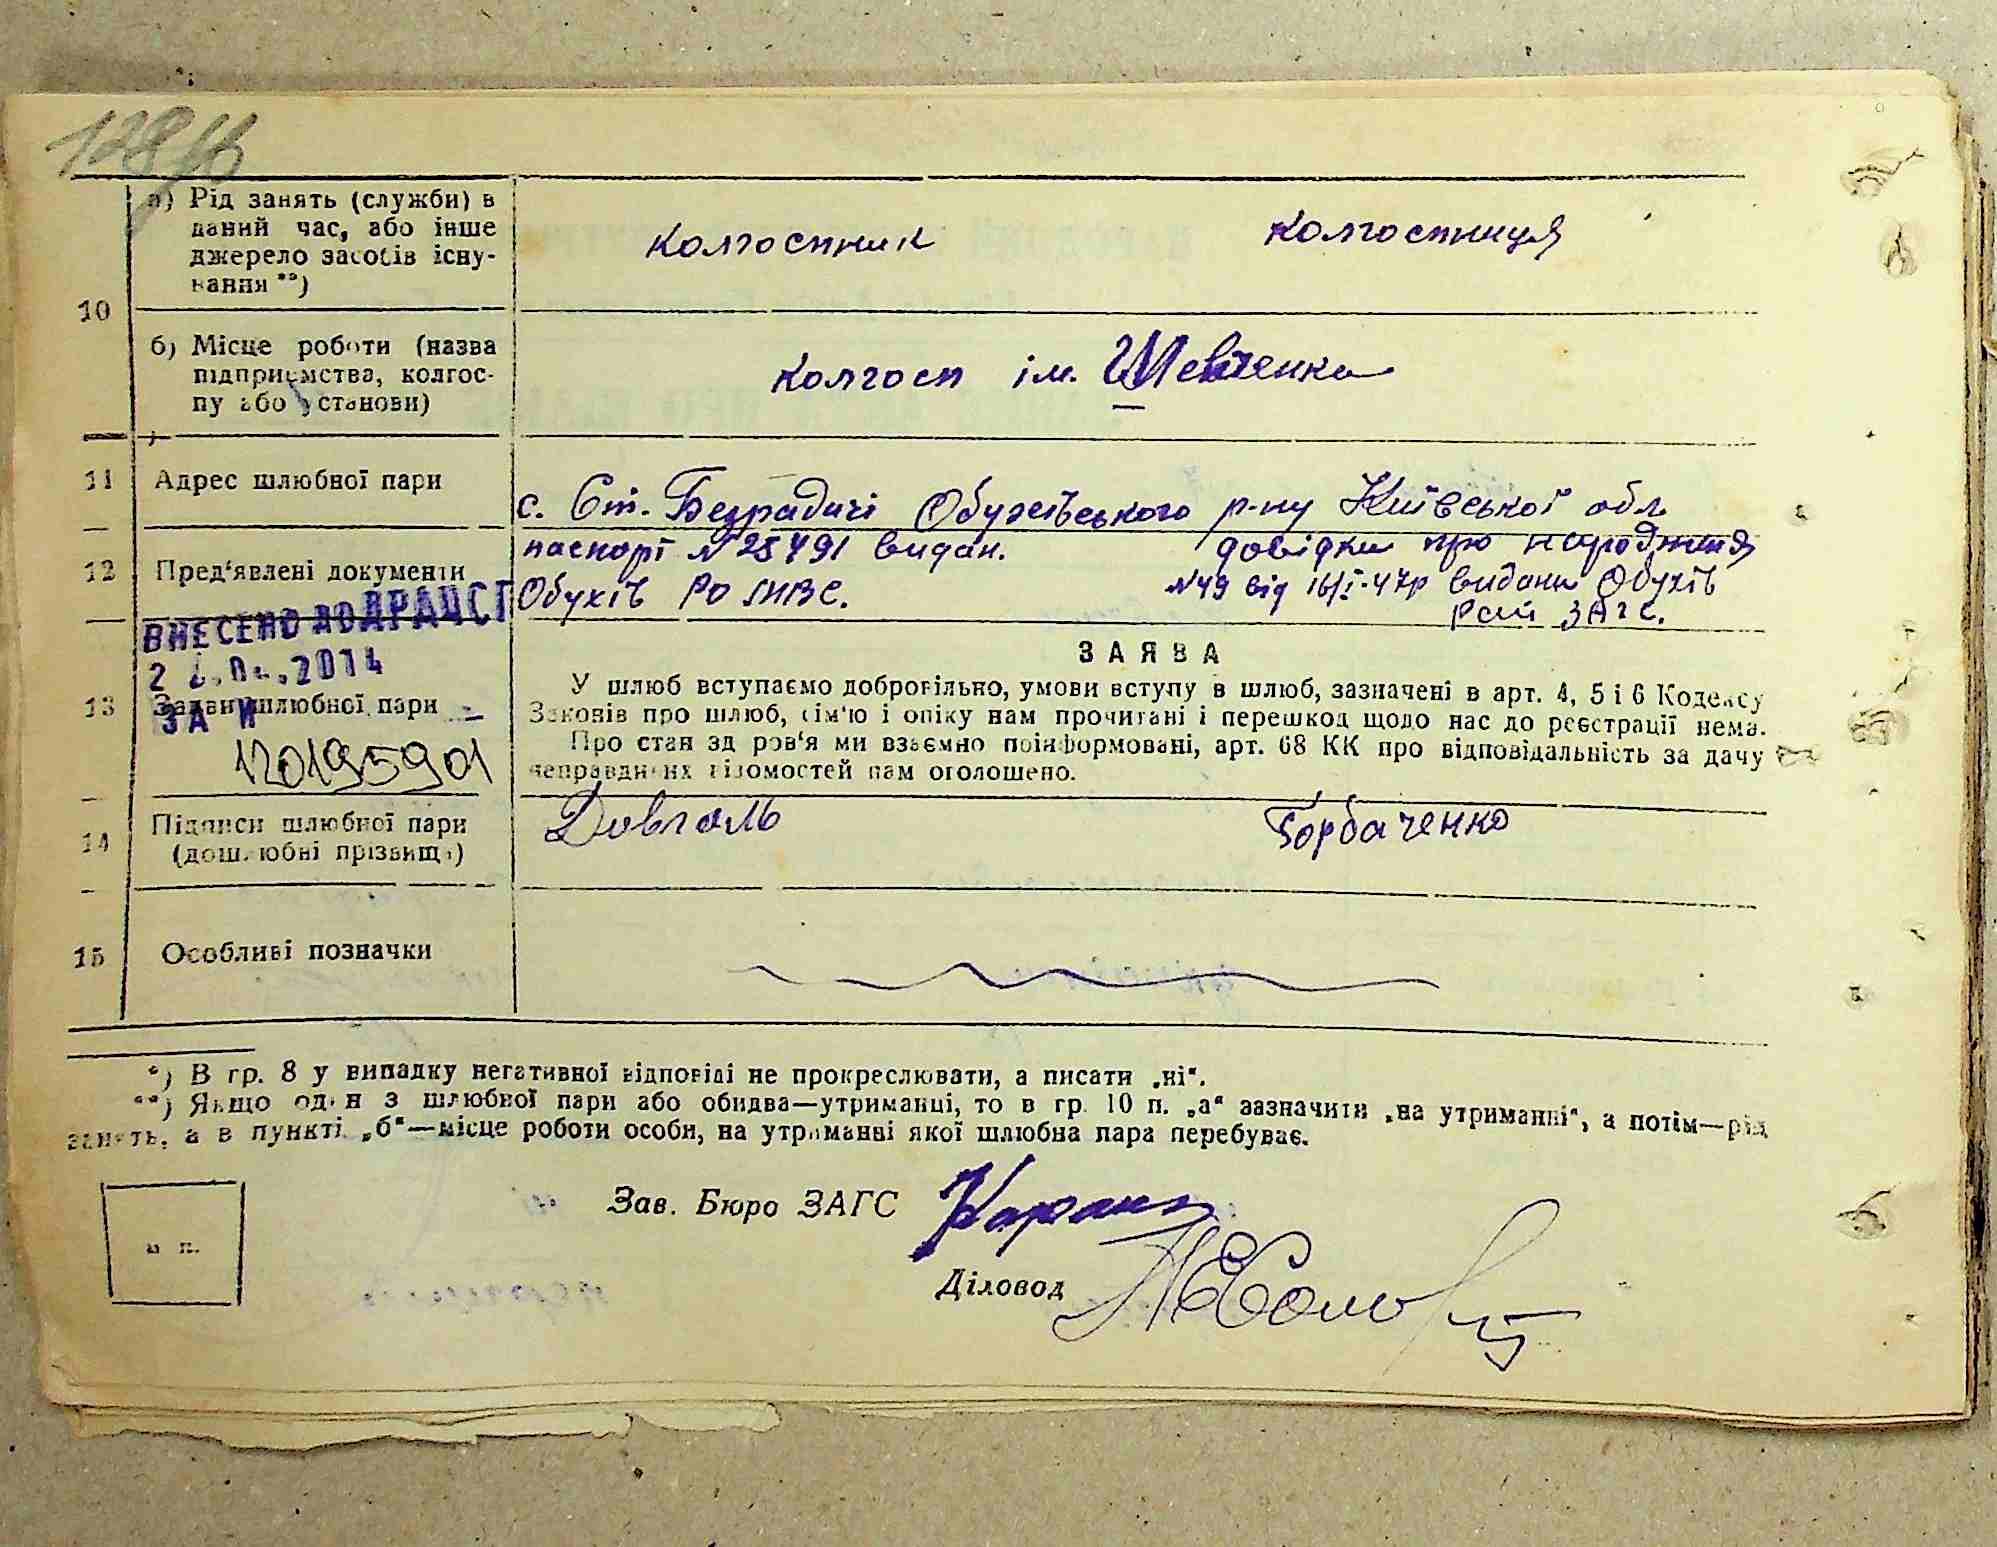 а) Рід занять (служби) в
даний час, або інше
джерело засобів існу-
вання **)
колгоспник колгоспниця
10
б) Місце роботи (назва
підприємства, колгос-
пу або установи)
колгосп ім. Шевченка
11 Адрес шлюбної пари
с. Ст. Безрадичі Обухівського р-ну Київської обл
12 Пред'явлені документи
паспорт №25791 видан.
Обухів РО МВС.
довідки про народження
№49 від 16/I-47р видани Обухів
Рай ЗАГС.
ВНЕСЕНО ДО ДРАЦСГ
.2014
ЗА №
120195901
13 Заяви шлюбної пари
ЗАЯВА
У шлюб вступаємо добровільно, умови вступу в шлюб, зазначені в арт. 4, 5 і 6 Кодексу
Законів про шлюб, сім'ю і опіку нам прочитані і перешкод щодо нас до реєстрації нема.
Про стан здоров'я ми взаємно поінформовані, арт. 68 КК про відповідальність за дачу
неправдивих відомостей нам оголошено.
14 Підписи шлюбної пари
(дошлюбні прізвища)
Довгаль Горбаченко
15 Особливі позначки
*) В гр. 8 у випадку негативної відповіді не прокреслювати, а писати „ні“.
**) Якщо один з шлюбної пари або обидва—утриманці, то в гр. 10 п. „а“ зазначити „на утриманні“, а потім—рід
занять, а в пункті „б“—місце роботи особи, на утриманні якої шлюбна пара перебуває.
Зав. Бюро ЗАГС
м п.
Діловод